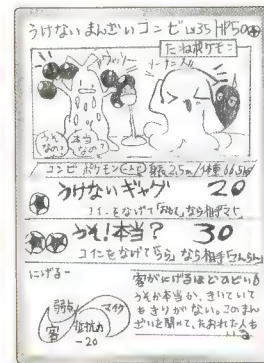 うけないまんざいコンビ Lv.35 HP50
たねポケモン
ウッソー
ソーナンス
うそなの?
本当なの?
コンビポケモン 身長2.5m/体重66.5kg
うけないギャグ 20
コインをなげて「おもて」なら相手マヒ
うそ!本当? 30
コインをなげて「うら」なら相手こんらん
にげる-
弱点 マイク
客 抵抗力
-20
客がにげるほどさむい
うそか本当か、きいていて
もきりがない。このまん
ざいを聞いて、たおれた人も
いる